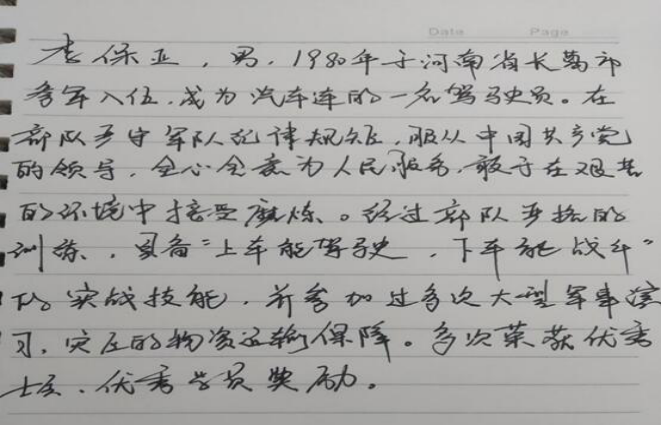 Date Page
李保亚，男，1980年于河南省长葛市
参军入伍，成为汽车连的一名驾驶员。在
部队严守军队纪律规矩，服从中国共产党
的领导，全心全意为人民服务，敢于在艰苦
的环境中接受磨炼。经过部队严格的
训练，具备"上车能驾驶，下车能战斗"
的实战技能，并参加过多次大型军事演
习，灾区的物资运输保障。多次荣获优秀
士兵、优秀学员奖励。